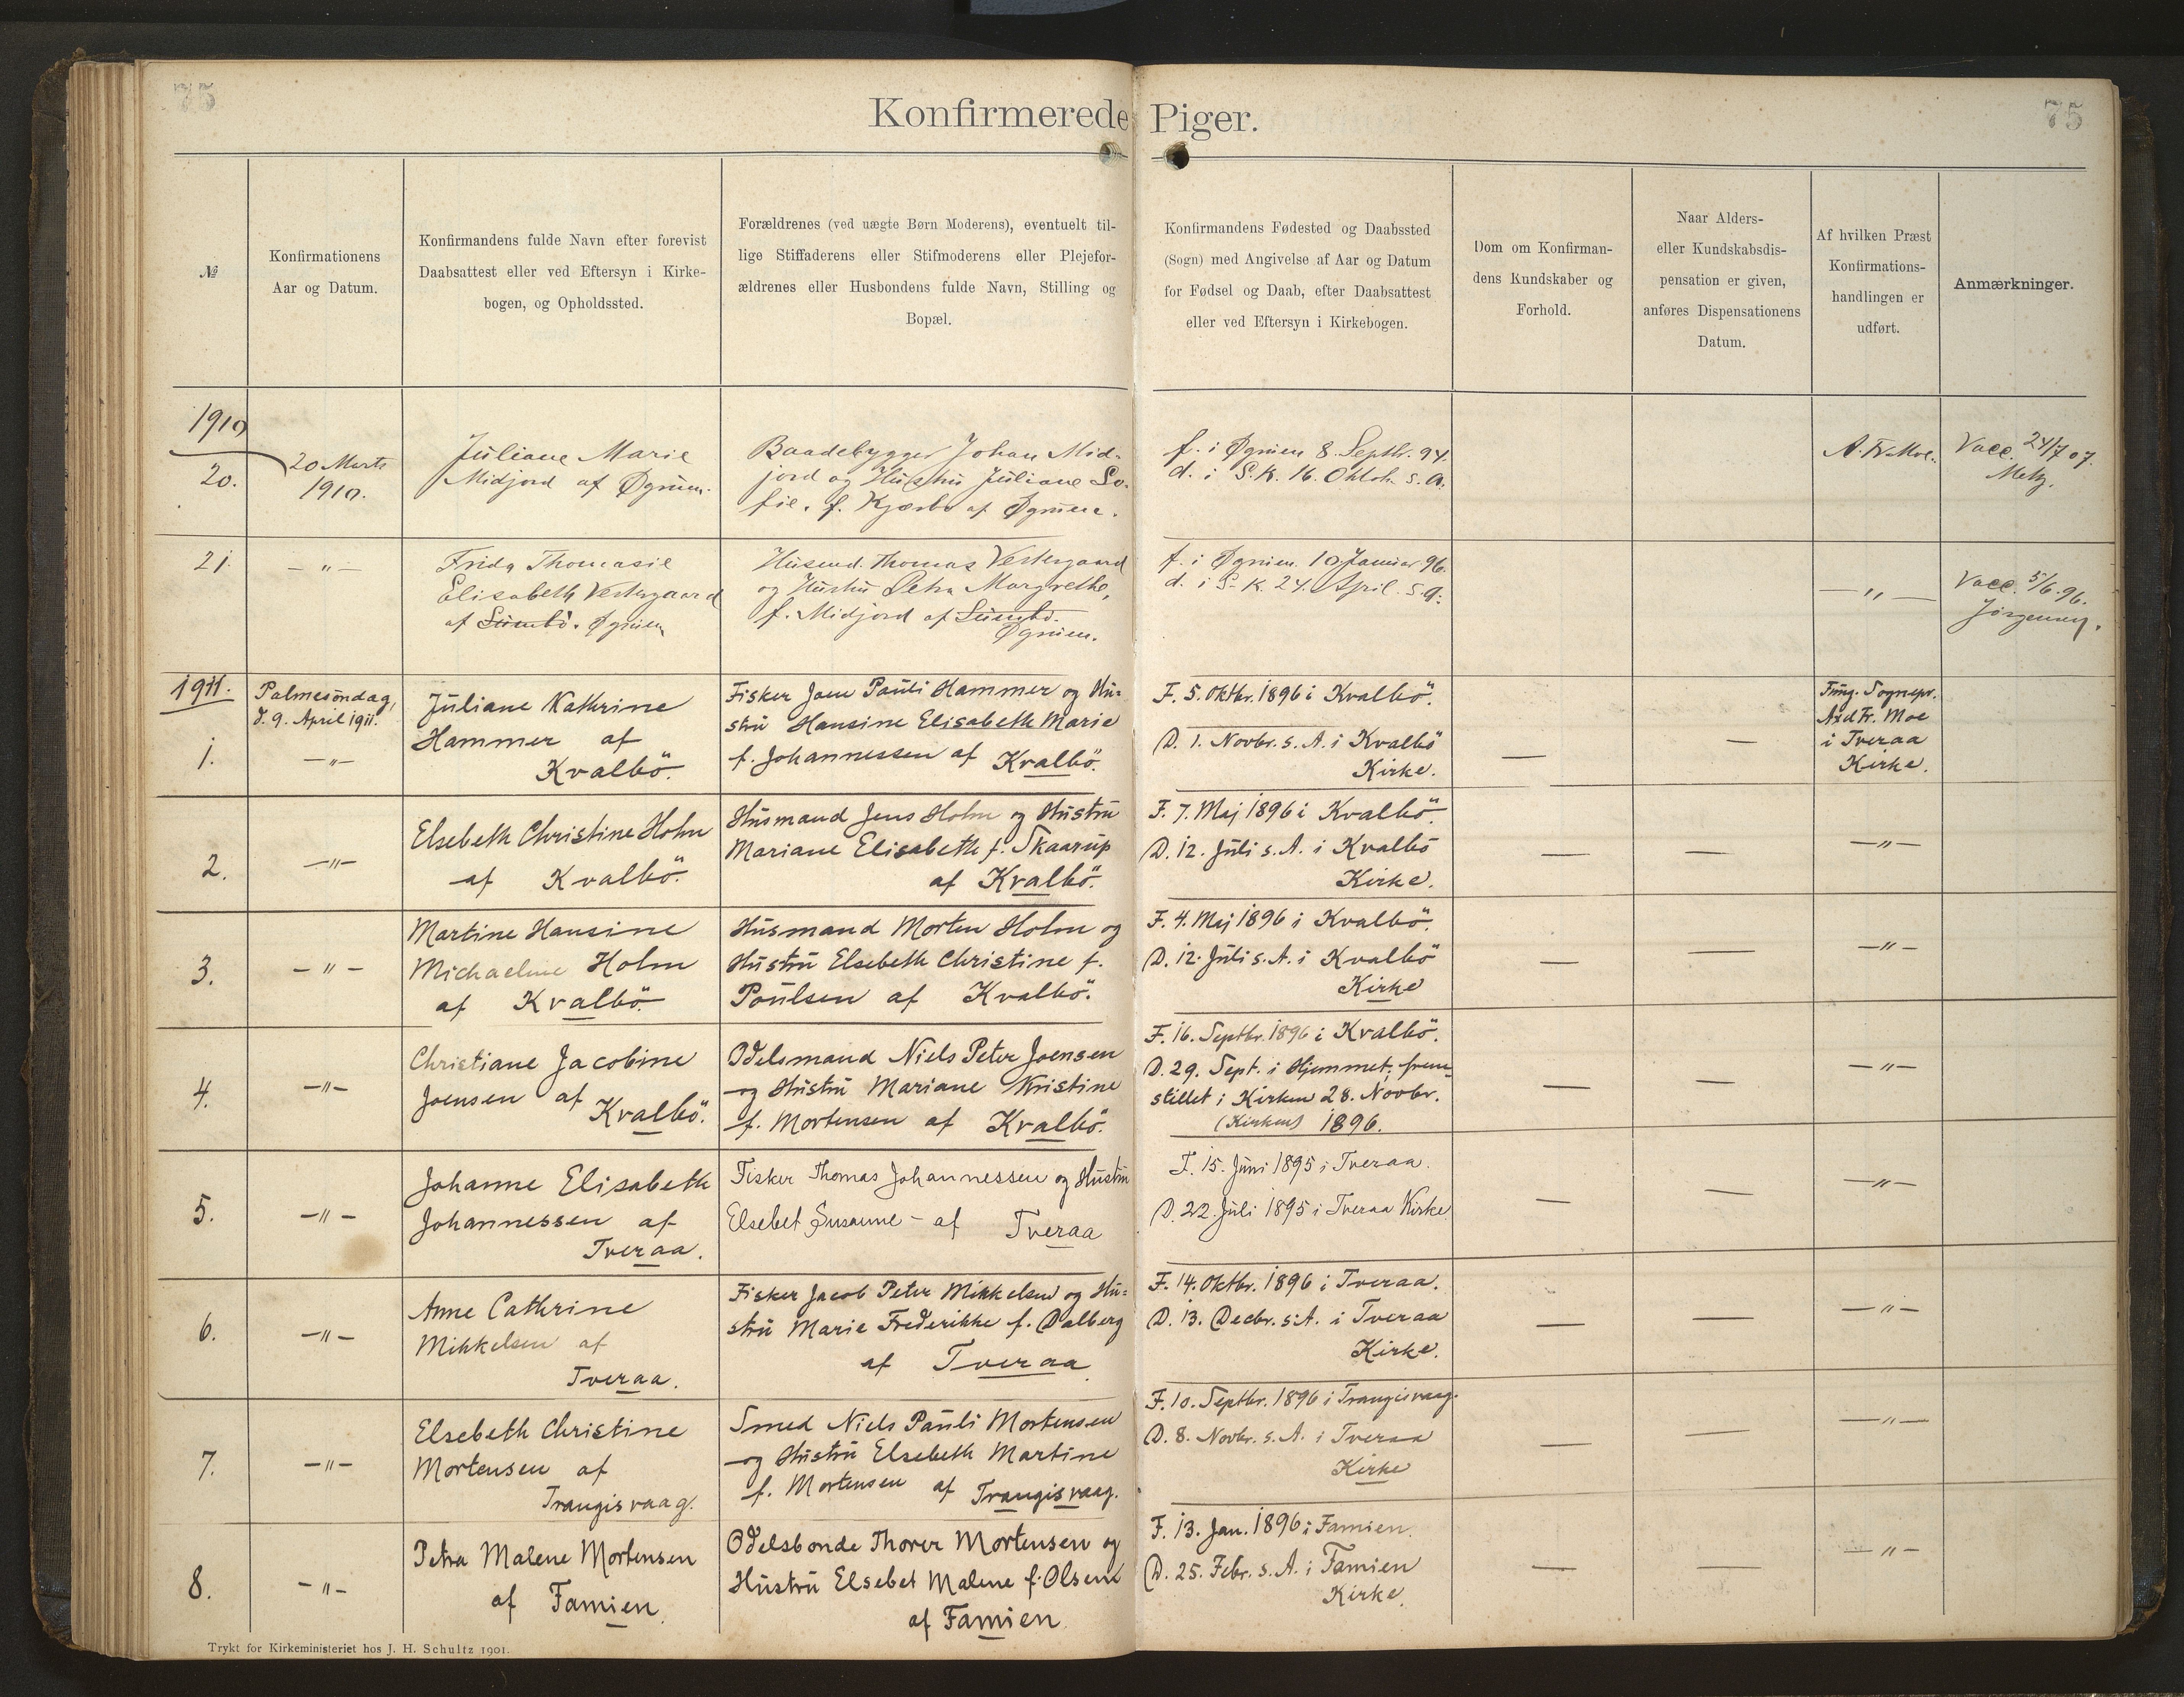 75
75
Konfirmerede Piger.
№
Konfirmationens
Aar og Datum.
Konfirmandens fulde Navn efter forevist
Daabsattest eller ved Eftersyn i Kirke-
bogen, og Opholdssted.
Forældrenes (ved uægte Børn Moderens), eventuelt til-
lige Stiffaderens eller Stifmoderens eller Plejefor-
ældrenes eller Husbondens fulde Navn, Stilling og
Bopæl.
Konfirmandens Fødested og Daabssted
(Sogn) med Angivelse af Aar og Datum
for Fødsel og Daab, efter Daabsattest
eller ved Eftersyn i Kirkebogen.
Dom om Konfirman-
dens Kundskaber og
Forhold.
Naar Alders-
eller Kundskabsdis-
pensation er given,
anføres Dispensationens
Datum.
Af hvilken Præst
Konfirmations-
handlingen er
udført.
Anmærkninger.
1910
20.
20 Marts
1910.
Juliane Marie
Midjord af Øgnien.
Baadebygger Johan Mid-
jord og Hustru Juliane So-
fie, f. Kjærbo af Øgnien.
f. i Øgnien 8. Septbr. 94.
d. i S. K. 16. Oktob. s. A.
A. Fr. Moe.
Vacc. 24/7 07.
Metz.
21.
— " —
Frida Thomasie
Elisabeth Vestergaard
af Sumbö. Øgnien
Husmd. Thomas Vestergaard
og Hustru Petra Margrethe,
f. Midjord af Sumbö.
Øgnien.
f. i Øgnien 10 Januar 96.
d. i S. K. 24. April. s. A.
— " —
Vacc. 5/6. 96.
Jörgensen.
1911.
1.
Palmesöndag,
d. 9. April 1911.
— " —
Juliane Kathrine
Hammer af
Kvalbö.
Fisker Joen Pauli Hammer og Hu-
stru Hansine Elisabeth Marie
f. Johannessen af Kvalbö.
F. 5. Oktbr. 1896 i Kvalbö.
D. 1. Novbr. s. A. i Kvalbö
Kirke.
—
—
Fung. Sognepr.
Axd Fr. Moe
i Tveraa
Kirke.
2.
— " —
Elsebeth Christine Holm
af Kvalbö.
Husmand Jens Holm og Hustru
Mariane Elisabeth f. Skaarup
af Kvalbö.
F. 7. Maj 1896 i Kvalbö.
D. 12. Juli s. A. i Kvalbö
Kirke.
—
—
— " —
3.
— " —
Martine Hansine
Michaeline Holm
af Kvalbö
Husmand Morten Holm og
Hustru Elsebeth Christine f.
Poulsen af Kvalbö.
F. 4. Maj 1896 i Kvalbö.
D. 12. Juli s. A. i Kvalbö
Kirke
—
—
— " —
4.
— " —
Christiane Jacobine
Joensen af Kvalbö.
Odelsmand Niels Peter Joensen
og Hustru Mariane Kristine
f. Mortensen af Kvalbö.
F. 16. Septbr. 1896 i Kvalbö.
D. 29. Sept. i Hjemmet; frem-
stillet i Kirken 28. Novbr.
(Kirken) 1896.
—
—
— " —
5.
— " —
Johanne Elisabeth
Johannessen af
Tveraa.
Fisker Thomas Johannessen og Hustru
Elsebet Susanne – af Tveraa
F. 15. Juni 1895 i Tveraa.
D. 22. Juli 1895 i Tveraa Kirke
—
—
— " —
6.
— " —
Anne Cathrine
Mikkelsen af
Tveraa.
Fisker Jacob Peter Mikkelsen og Hu-
stru Marie Frederikke f. Dalberg
af Tveraa
F. 14. Oktbr. 1896 i Tveraa.
D. 13. Decbr. s. A. i Tveraa
Kirke.
—
—
— " —
7.
— " —
Elsebeth Christine
Mortensen af
Trangisvaag.
Smed Niels Pauli Mortensen
og Hustru Elsebeth Martine
f. Mortensen af Trangisvaag.
F. 10. Septbr. 1896 i Trangisvaag.
D. 8. Novbr. s. A. i Tveraa
Kirke
—
—
— " —
8.
— " —
Petra Malene Mortensen
af Famien.
Odelsbonde Thorer Mortensen og
Hustru Elsebet Malene f. Olsen
af Famien.
F. 13. Jan. 1896 i Famien.
D. 25. Febr. s. A. i Famien
Kirke.
—
—
— " —
Trykt for Kirkeministeriet hos J. H. Schultz 1901.